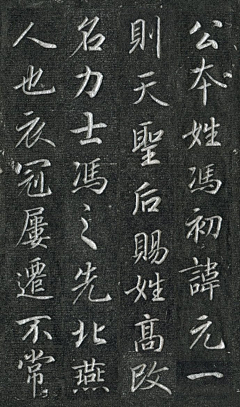 公本姓馮初諱元一
則天聖后賜姓高改
名力士馮之先北燕
人也衣冠屢遷不常